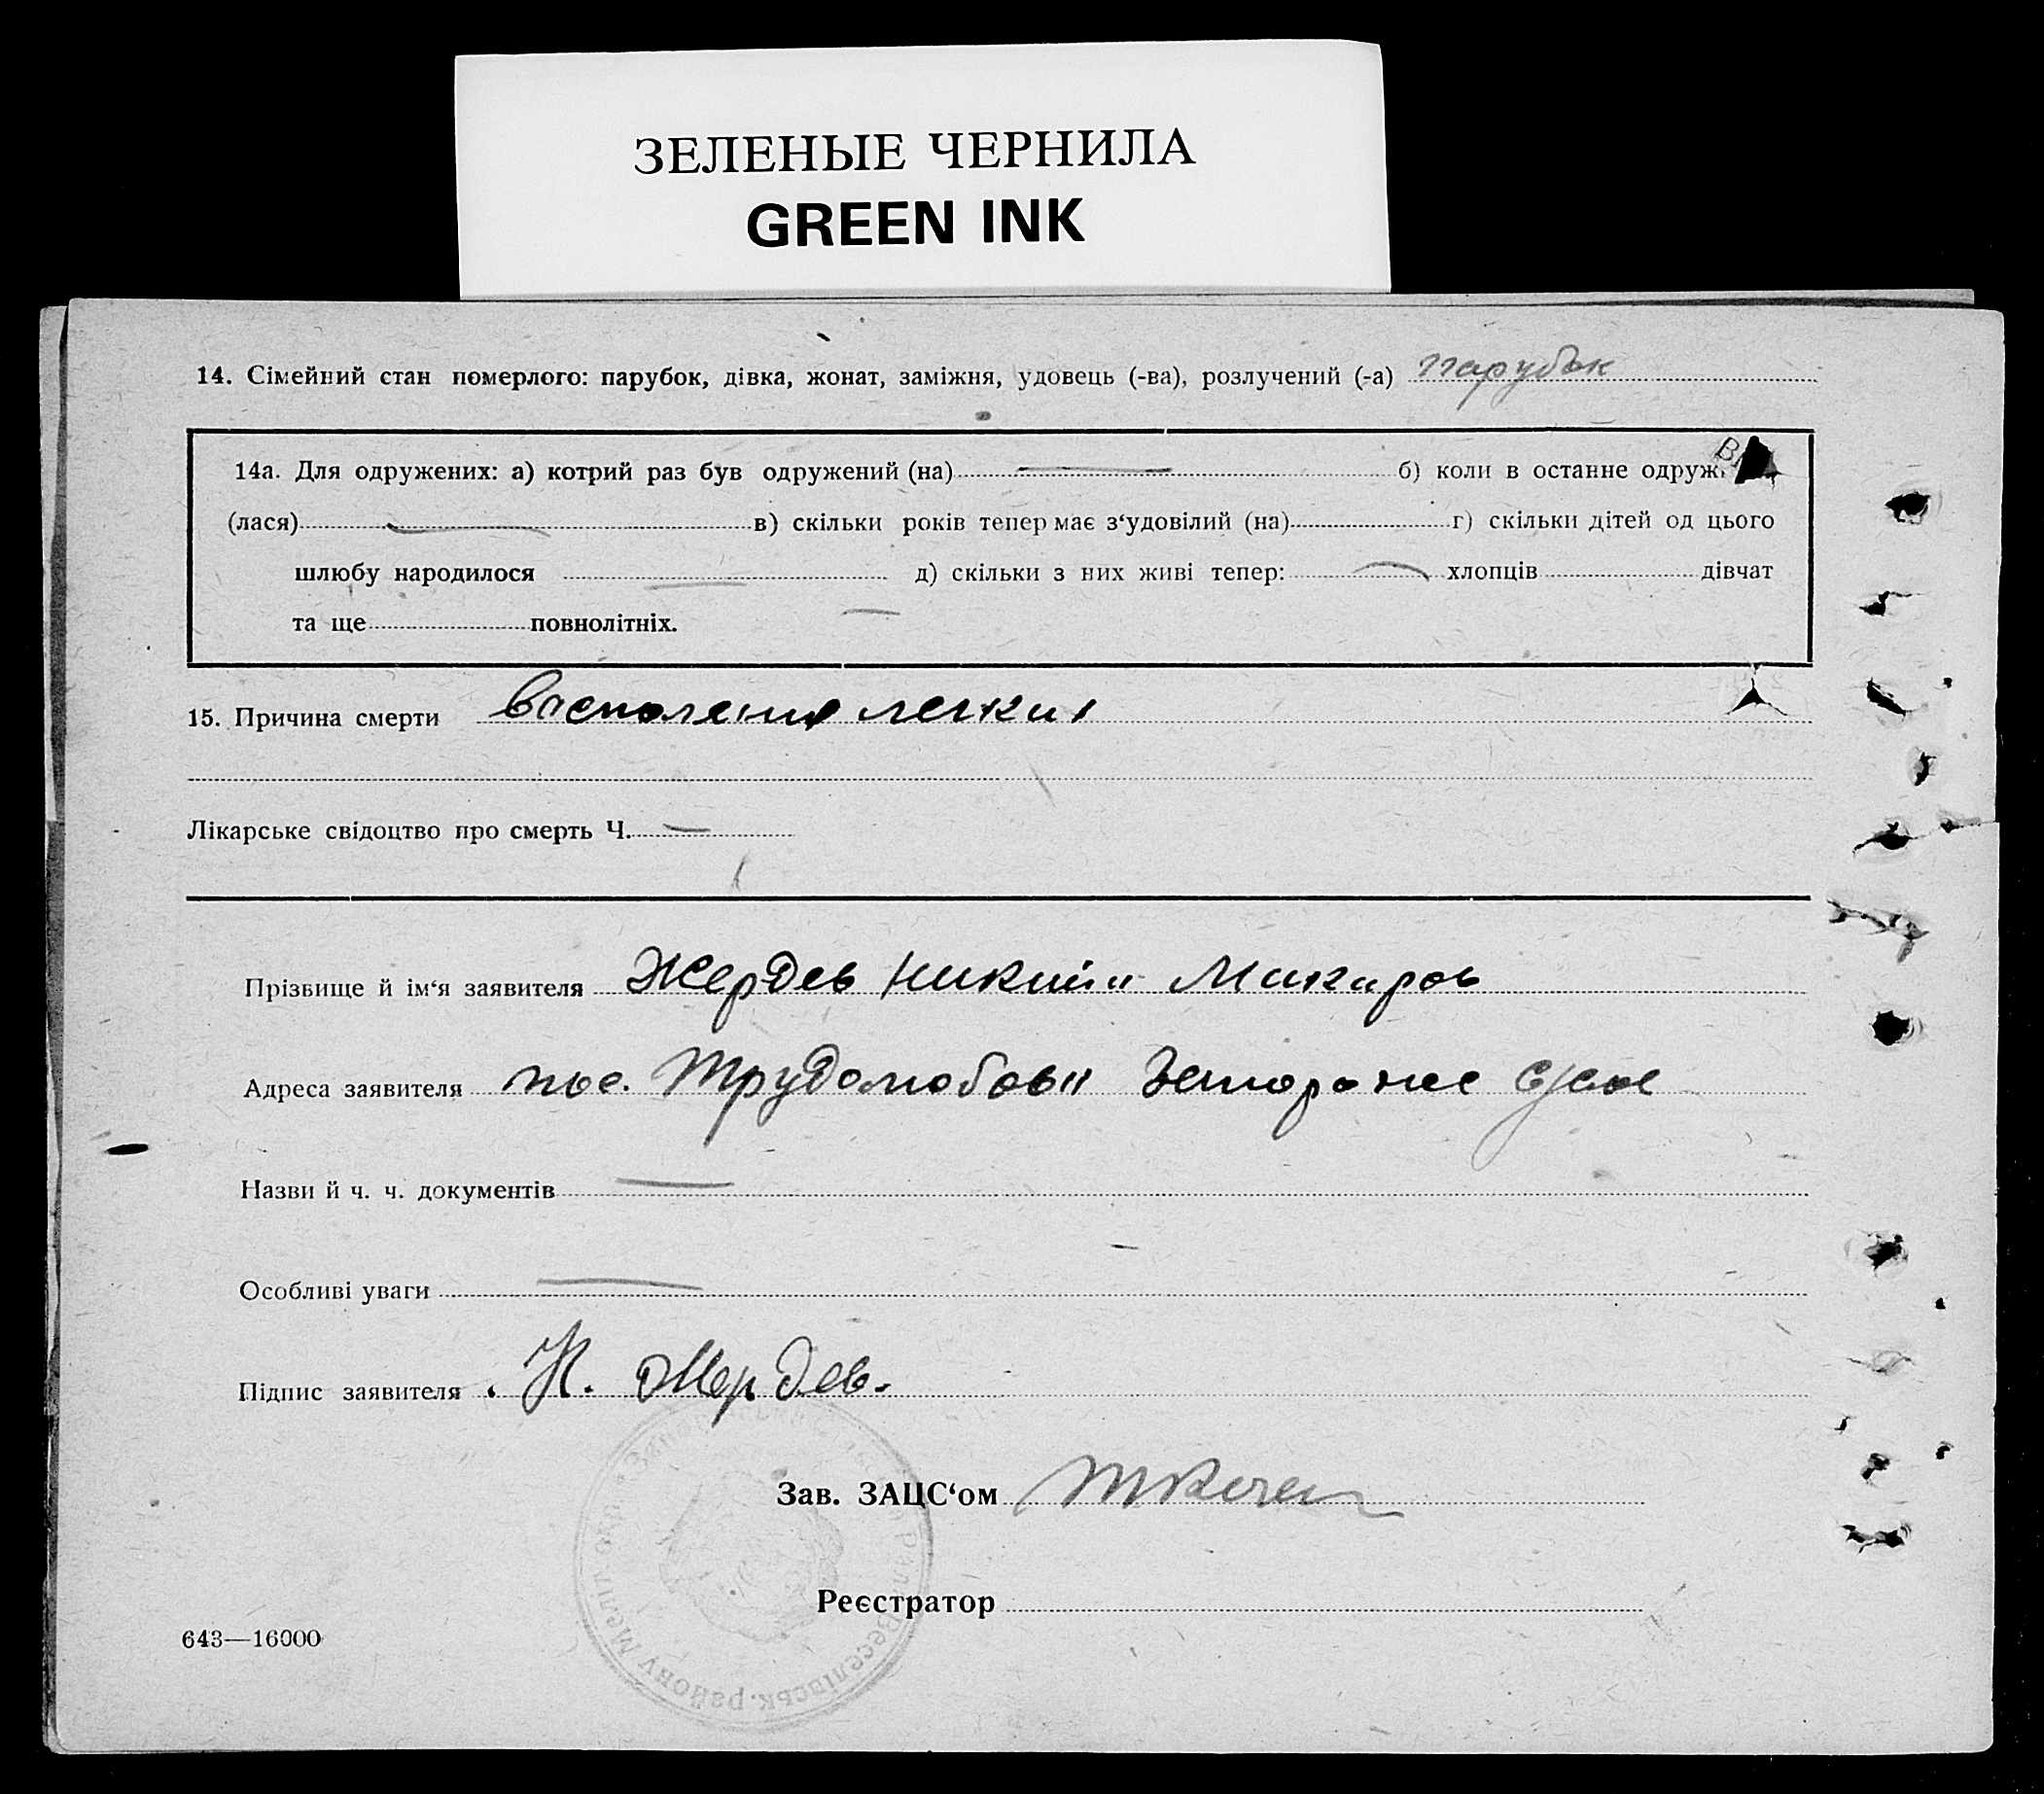 ЗЕЛЕНЫЕ ЧЕРНИЛА
GREEN INK
14. Сімейний стан померлого: парубок, дівка, жонат, заміжня, удовець (-ва), розлучений (-а) парубок
14а. Для одружених: а) котрий раз був одружений (на) б) коли в останнє одруж
(лася) в) скільки років тепер має з‘удовілий (на) г) скільки дітей од цього
шлюбу народилося д) скільки з них живі тепер: хлопців дівчат
та ще повнолітніх.
15. Причина смерти легких
Лікарське свідоцтво про смерть Ч. —
Прізвище й ім‘я заявителя Жердев Макаров
Адреса заявителя пос.
Назви й ч. ч. документів —
Особливі уваги —
Підпис заявителя Н. Жердев.
Зав. ЗАЦС‘ом
Реєстратор
643—16000
Веселівськ. району